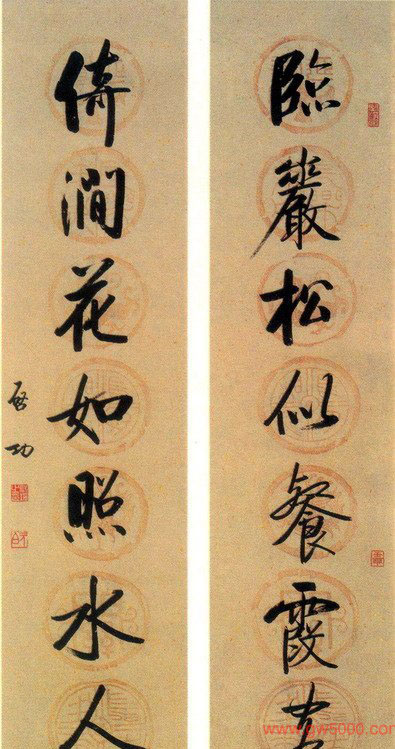 臨巖松似餐霞
倚澗花如照水人
啓功
www.gw5000.com